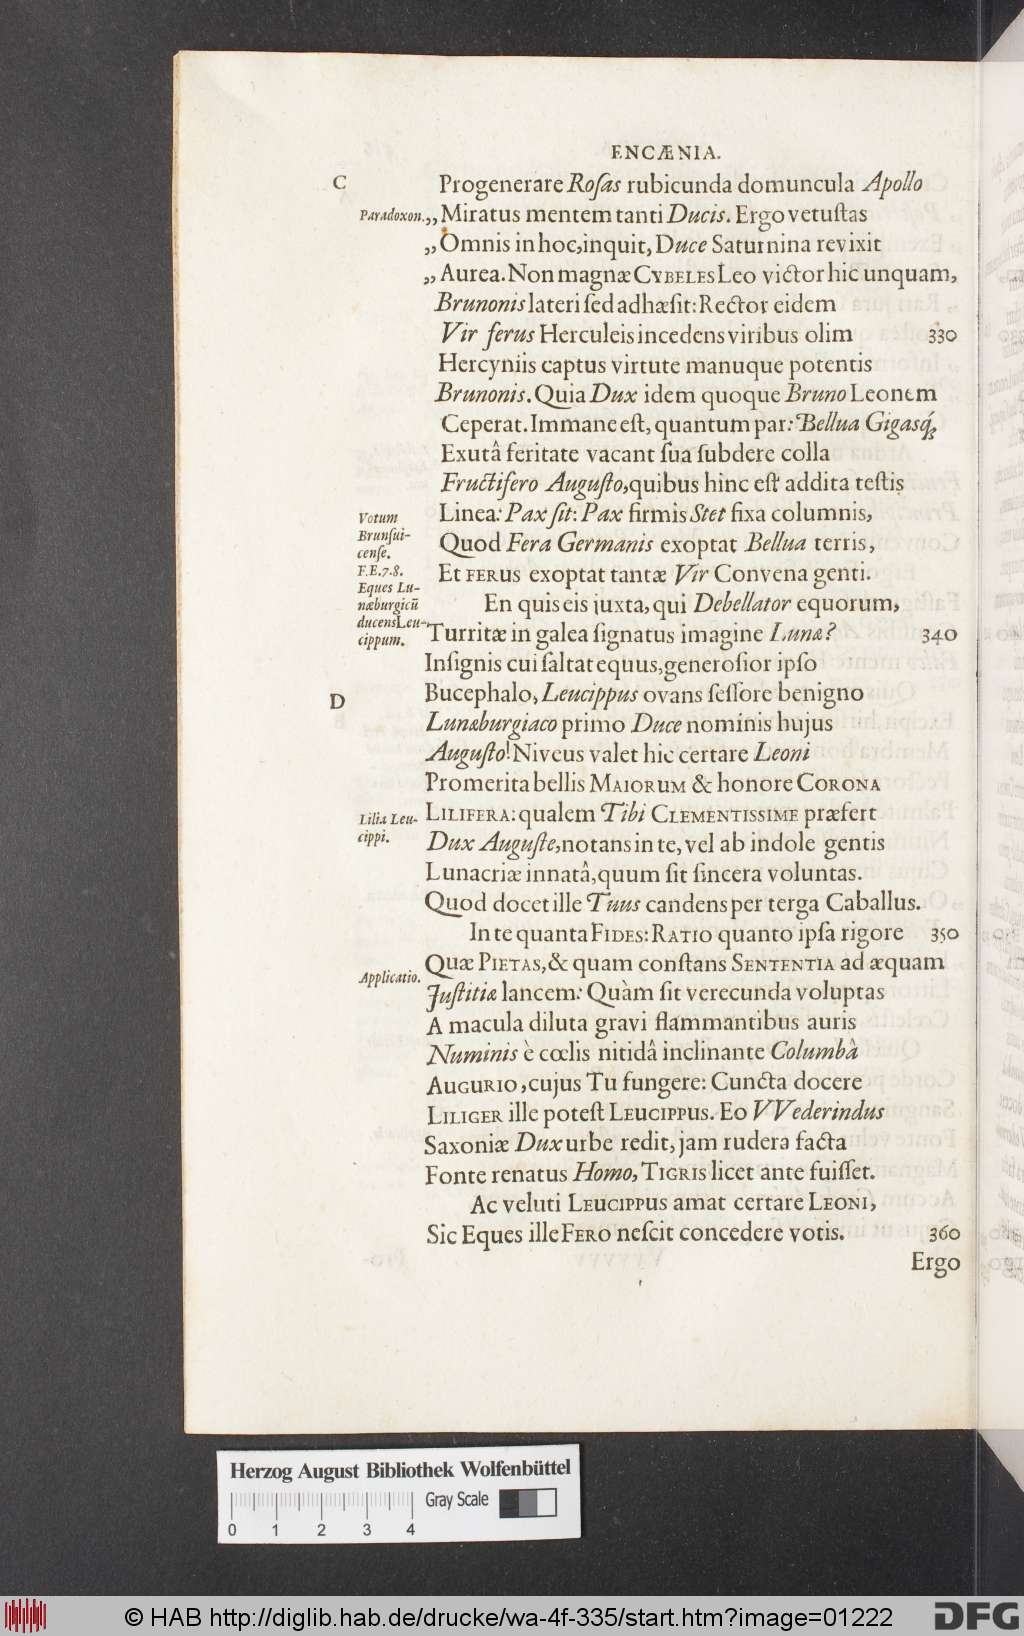 ENCÆNIA.
C Progenerare Roſas rubicunda domuncula Apollo
Paradoxon. „ Miratus mentem tanti Ducis. Ergo vetuſtas
„ Omnis in hoc, inquit, Duce Saturnina revixit
„ Aurea. Non magnæ CYBELES Leo victor hic unquam,
Brunonis lateri ſed adhæſit: Rector eidem
Vir ferus Herculeis incedens viribus olim 330
Hercyniis captus virtute manuque potentis
Brunonis. Quia Dux idem quoque Bruno Leonem
Ceperat. Immane eſt, quantum par: Bellua Gigasq́;
Exutâ feritate vacant ſua ſubdere colla
Fructifero Auguſto, quibus hinc eſt addita teſtis
Votum Linea: Pax ſit: Pax firmis Stet fixa columnis,
Brunſui-
cenſe. Quod Fera Germanis exoptat Bellua terris,
F.E.7.8. Et FERus exoptat tantæ Vir Convena genti.
Eques Lu-
næburgicū En quis eis juxta, qui Debellator equorum,
ducens Leu-
cippum. Turritæ in galea ſignatus imagine Lunæ? 340
Inſignis cui ſaltat equus, generoſior ipſo
D Bucephalo, Leucippus ovans ſeſſore benigno
Lunæburgiaco primo Duce nominis hujus
Auguſto! Niveus valet hic certare Leoni
Promerita bellis MAIORUM & honore CORONA
Lilia Leu-
cippi. LILIFERA: qualem Tibi CLEMENTISSIME præfert
Dux Auguſte, notans in te, vel ab indole gentis
Lunacriæ innatâ, quum ſit ſincera voluntas.
Quod docet ille Tuus candens per terga Caballus.
In te quanta FIDES: RATIO quanto ipſa rigore 350
Applicatio. Quæ PIETAS, & quam conſtans SENTENTIA ad æquam
Juſtitiæ lancem: Quàm ſit verecunda voluptas
A macula diluta gravi flammantibus auris
Numinis è cœlis nitidâ inclinante Columbâ
AUGURIO, cujus Tu fungere: Cuncta docere
LILIGER ille poteſt LEUCIPPUS. Eo VVederindus
Saxoniæ Dux urbe redit, jam rudera facta
Fonte renatus Homo, TIGRIS licet ante fuiſſet.
Ac veluti LEUCIPPUS amat certare LEONI,
Sic Eques ille FERO neſcit concedere votis. 360
Ergo
Herzog August Bibliothek Wolfenbüttel
Gray Scale
0 1 2 3 4
© HAB http://diglib.hab.de/drucke/wa-4f-335/start.htm?image=01222
DFG